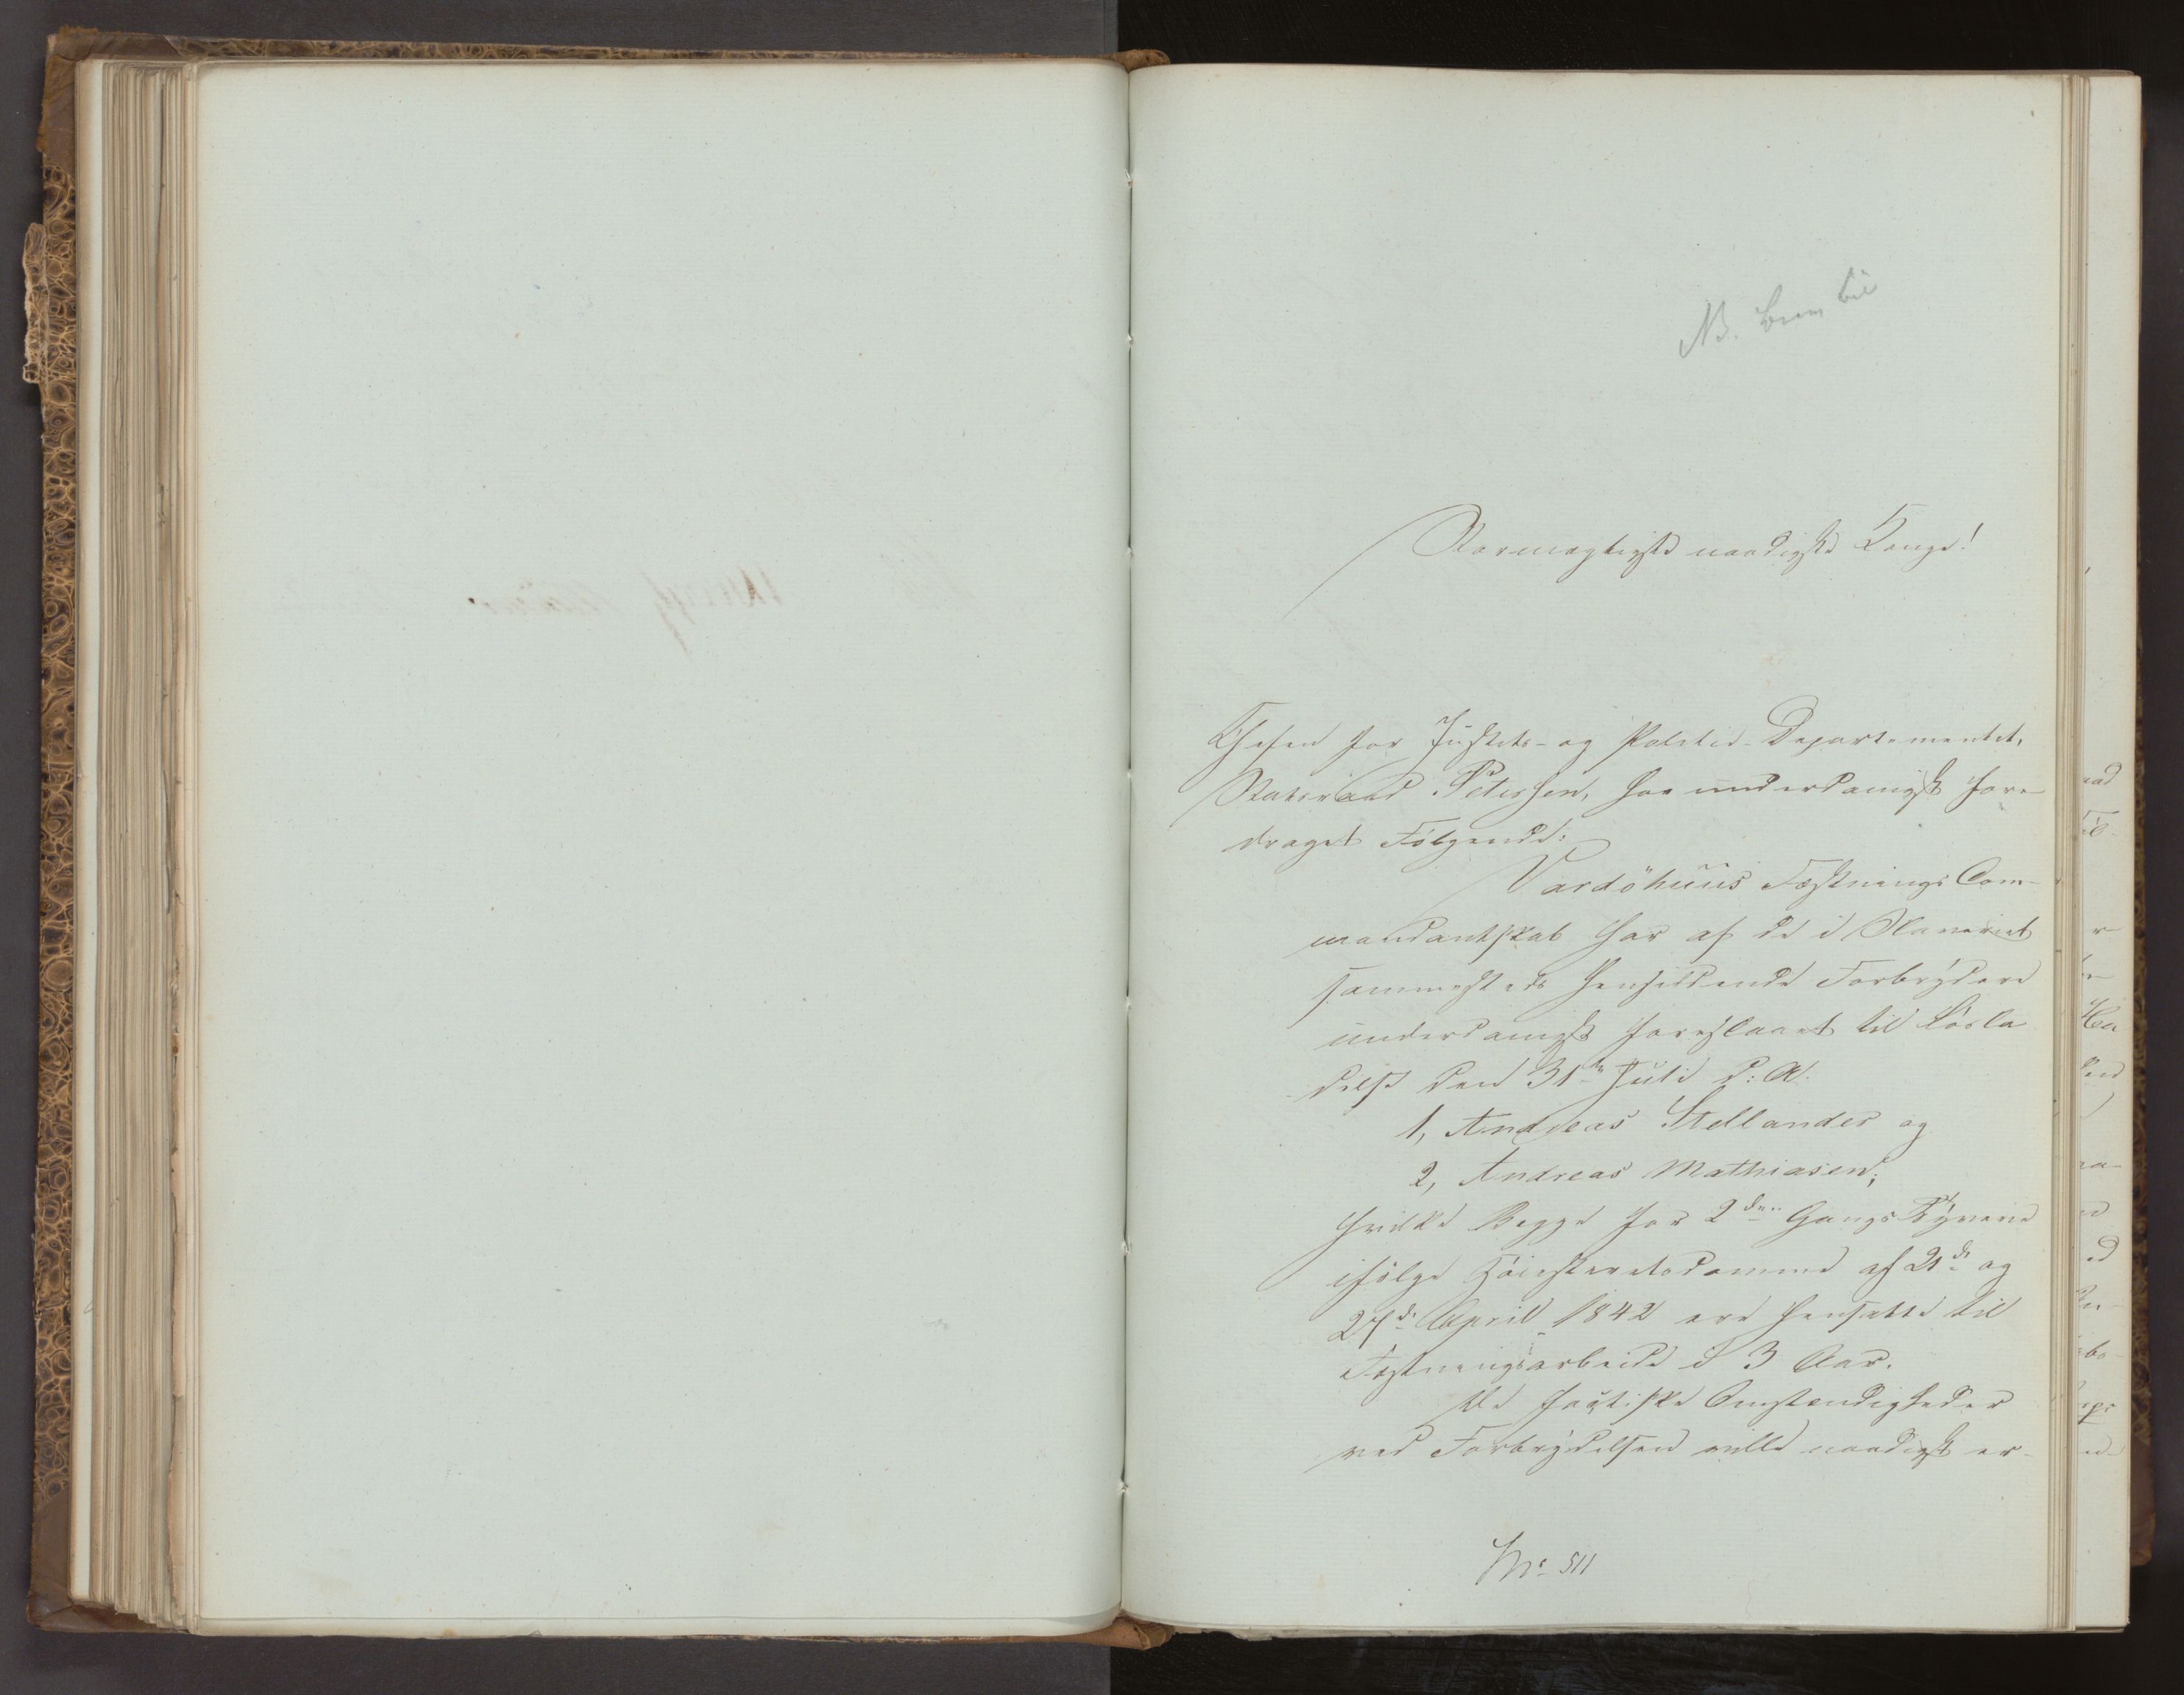 Stormægtigste naadigste Konge!
Chefen for Justits- og Politie-Departementet,
Statsraad Petersen, har underdanigst fore-
draget Følgende:
Vardöhuus Fæstnings Com-
mandantskab har af de i Slaveriet
sammesteds hensiddende Forbrydere
underdanigst foreslaaet til Løsla
delse den 31te Juli d: A.
1, Andreas Stellander og
2, Andreas Mathiasen;
hvilke Begge for 2den Gangs Tyverie
ifölge Höiesteretsdomme af 21de og
27de April 1842 ere hensatte til
Fæstningsarbeide i 3 Aar.
De factiske Omstændigheder
ved Forbrydelsen ville naadigst er-
No 511